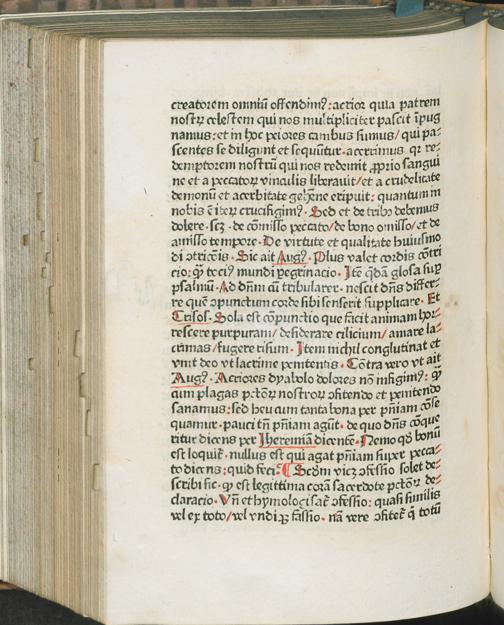 creatorem omniū offendim⁹: acrior quia patrem
nostꝝ celestem qui nos multipliciter pascit īpug
namus: et in hoc peiores canibus sumus/ qui pa⸗
scentes se diligunt et sequūtur. acerrimus qꝛ re⸗
demptorem nostrū qui nos redemit ꝓprio sangui
ne et a peccatoꝝ vinculis liberauit/ et a crudelitate
demonū et acerbitate gehēne eripuit: quantum in
nobis ē iteꝝ crucifigim⁹. Sed et de tribꝰ debemus
dolere. scꝫ. de cōmisso peccato/ de bono omisso/ et de
amisso tempore. De virtute et qualitate huiusmo
di ↄtricōis. Sic ait Aug⁹. Plus valet cordis cōtri
cio: ꝙ̄ toci⁹ mundi peregrinacio. Itē q̄dā glosa sup̄
psalmū. Ad dn̄m cū tribularer. nescit dn̄s differ⸗
re quē ↄpunctum corde sibi senserit supplicare. Et
Crisos. Sola est cōpunctio que facit animam hor⸗
rescere purpuram/ desiderare cilicium/ amare la⸗
crimas/ fugere risum. Item nichil conglutinat et
vnit deo vt lacrime penitentis. Cōtra vero vt ait
Aug⁹. Acriores dyabolo dolores nō infigim⁹: ꝙ̄
cum plagas pctōꝝ nostroꝝ ↄfitendo et penitendo
sanamus: sed heu cum tanta bona per pn̄iam cōse
quamur. pauci tn̄ pn̄iam agūt. de quo dn̄s cōque
ritur dicens per Jheremiā dicente. Nemo qḋ bonū
est loquit̄. nullus est qui agat pn̄iam super pecca⸗
to dicens: quid feci. ¶ Scḋm vicꝫ ↄfessio solet de⸗
scribi sic. ꝙ est legittima corā sacerdote pctōꝝ de⸗
claracio. Vn̄ et hymologisat̄ ↄfessio: quasi similis
vel ex toto/ vel vndiqꝫ fassio. nā vere ↄfitet̄ q̄ totū